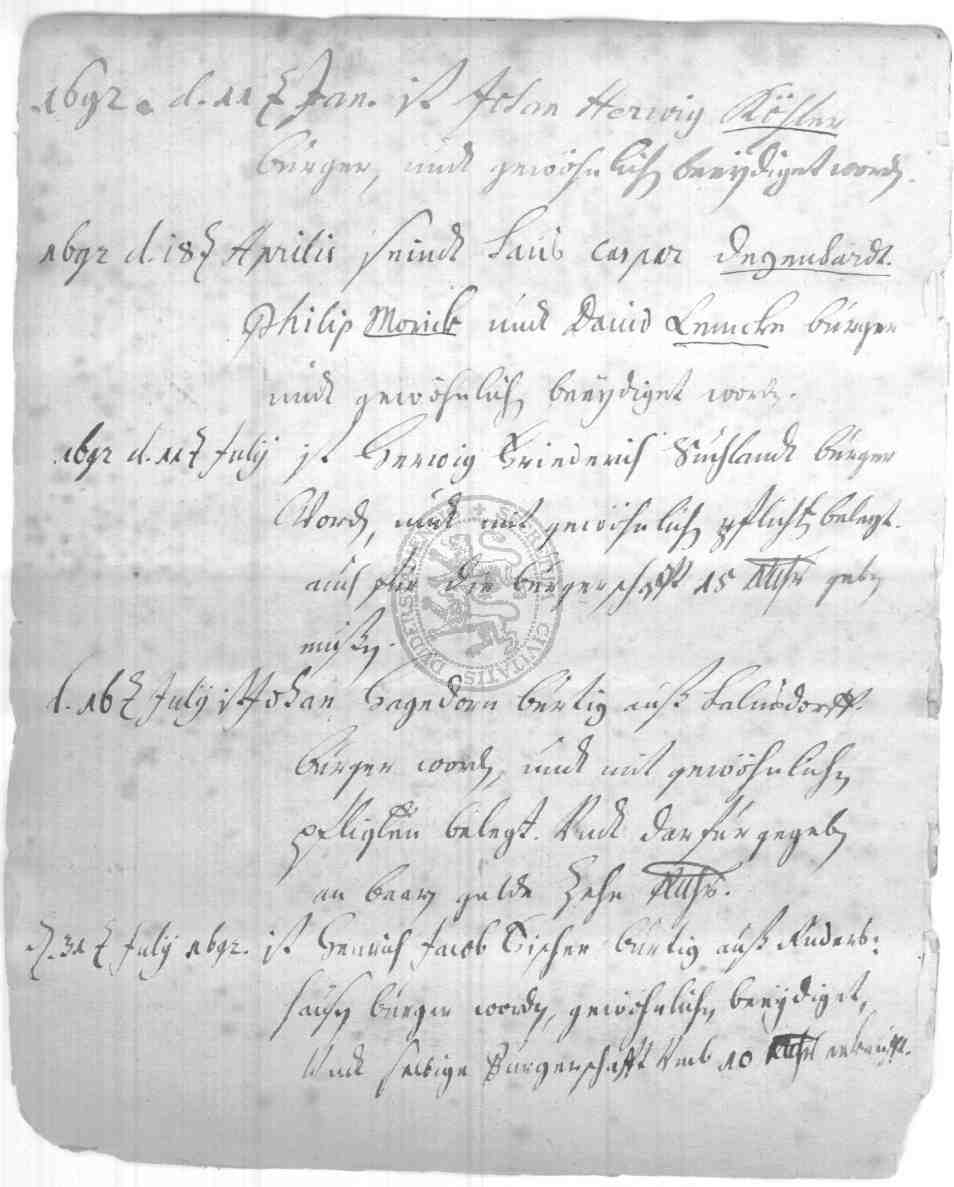 1692. d. 11 t Jan. ist Johan Herwig Köhler
bürger, undt gewöhnlich beeydiget word.
1692 d. 18 t Aprilis seindt Caspar Degenhardt.
Philip Morick undt David Lemcke bürger
undt gewöhnlich beeydiget word.
1692 d. 11 t July ist Herwig Friederich Suchlandt bürger
Word, undt mit gewöhnlich pflicht belegt.
auch für die bürgerschafft 15 Rthr geben
müßen.
d. 16 t July ist Johan Hagedorn bürtig auß
bürger word, undt mit gewöhnlichen
pflichten belegt. Undt darfür gegeben
an baar gelde Zehn Rthr.
d. 31 t July 1692. ist Henrich Jacob Fischer bürtig auß Rüders:
hausen bürger worden, gewöhnlichen beeydiget,
Undt selbige Bürgerschafft Umb 10 Rthr erkaufft.
SECRETUM CIVITATIS DUDENSTADENSIS